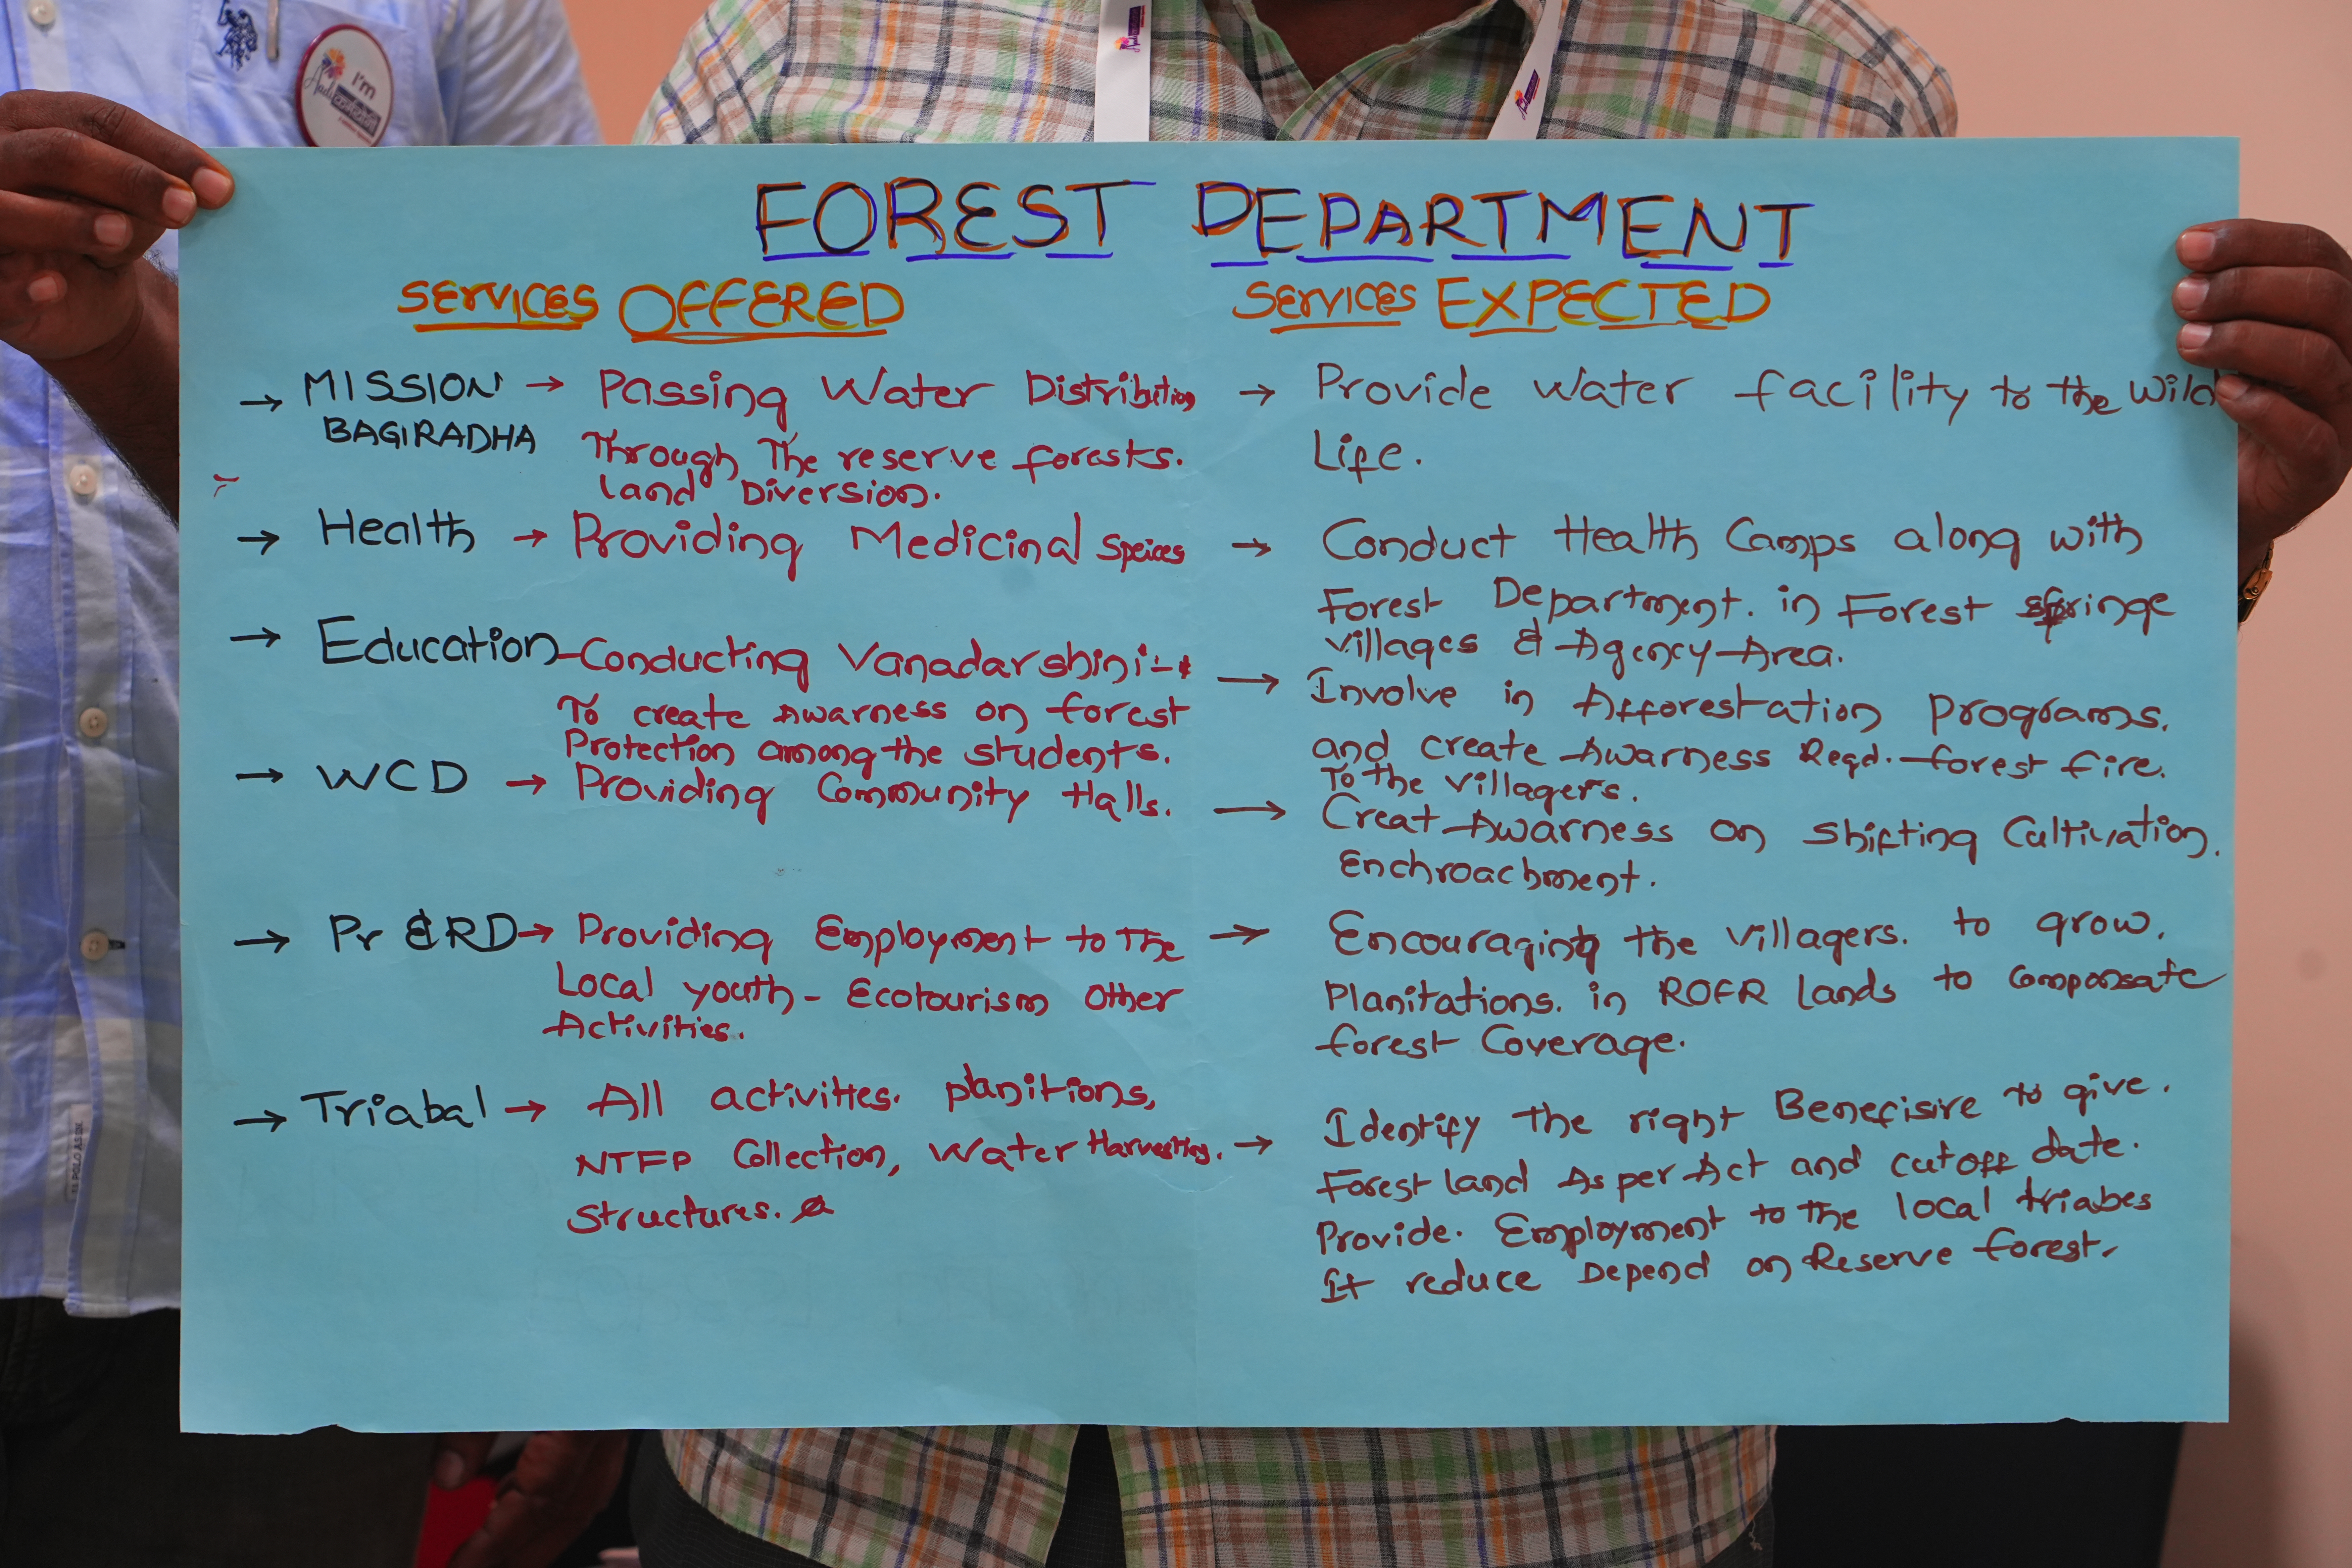 I'm
Aadi
FOREST DEPARTMENT
SERVICES OFFERED
→ MISSION → Passing Water Distribution
BAGIRADHA
Through The reserve forests.
land Diversion.
→ Health → Providing Medicinal Speices
→ Education - Conducting Vanadarshini
To create Awarness on forest
Protection among the students.
→ WCD → Providing Community Halls.
→ Pr & RD → Providing Employment to The
Local youth - Ecotourism Other
Activities.
→ Triabal → All activities. planitions,
NTFP Collection, Water Harvesting.
Structures.
SERVICES EXPECTED
→ Provide Water facility to the Wild
Life.
→ Conduct Health Camps along with
Forest Department. in Forest fringe
villages & Agency Area.
→ Involve in Afforestation Programs.
and create Awarness Regd. forest fire.
To the villagers.
→ Creat Awarness on Shifting Cultivation.
Enchroachment.
→ Encouraging the villagers. to grow.
Planitations. in ROFR lands to Compansate
forest Coverage.
→ Identify the right Benefisire to give.
Forest land As per Act and cutoff date.
Provide. Employment to the local triabes
It reduce Depend on Reserve forest.